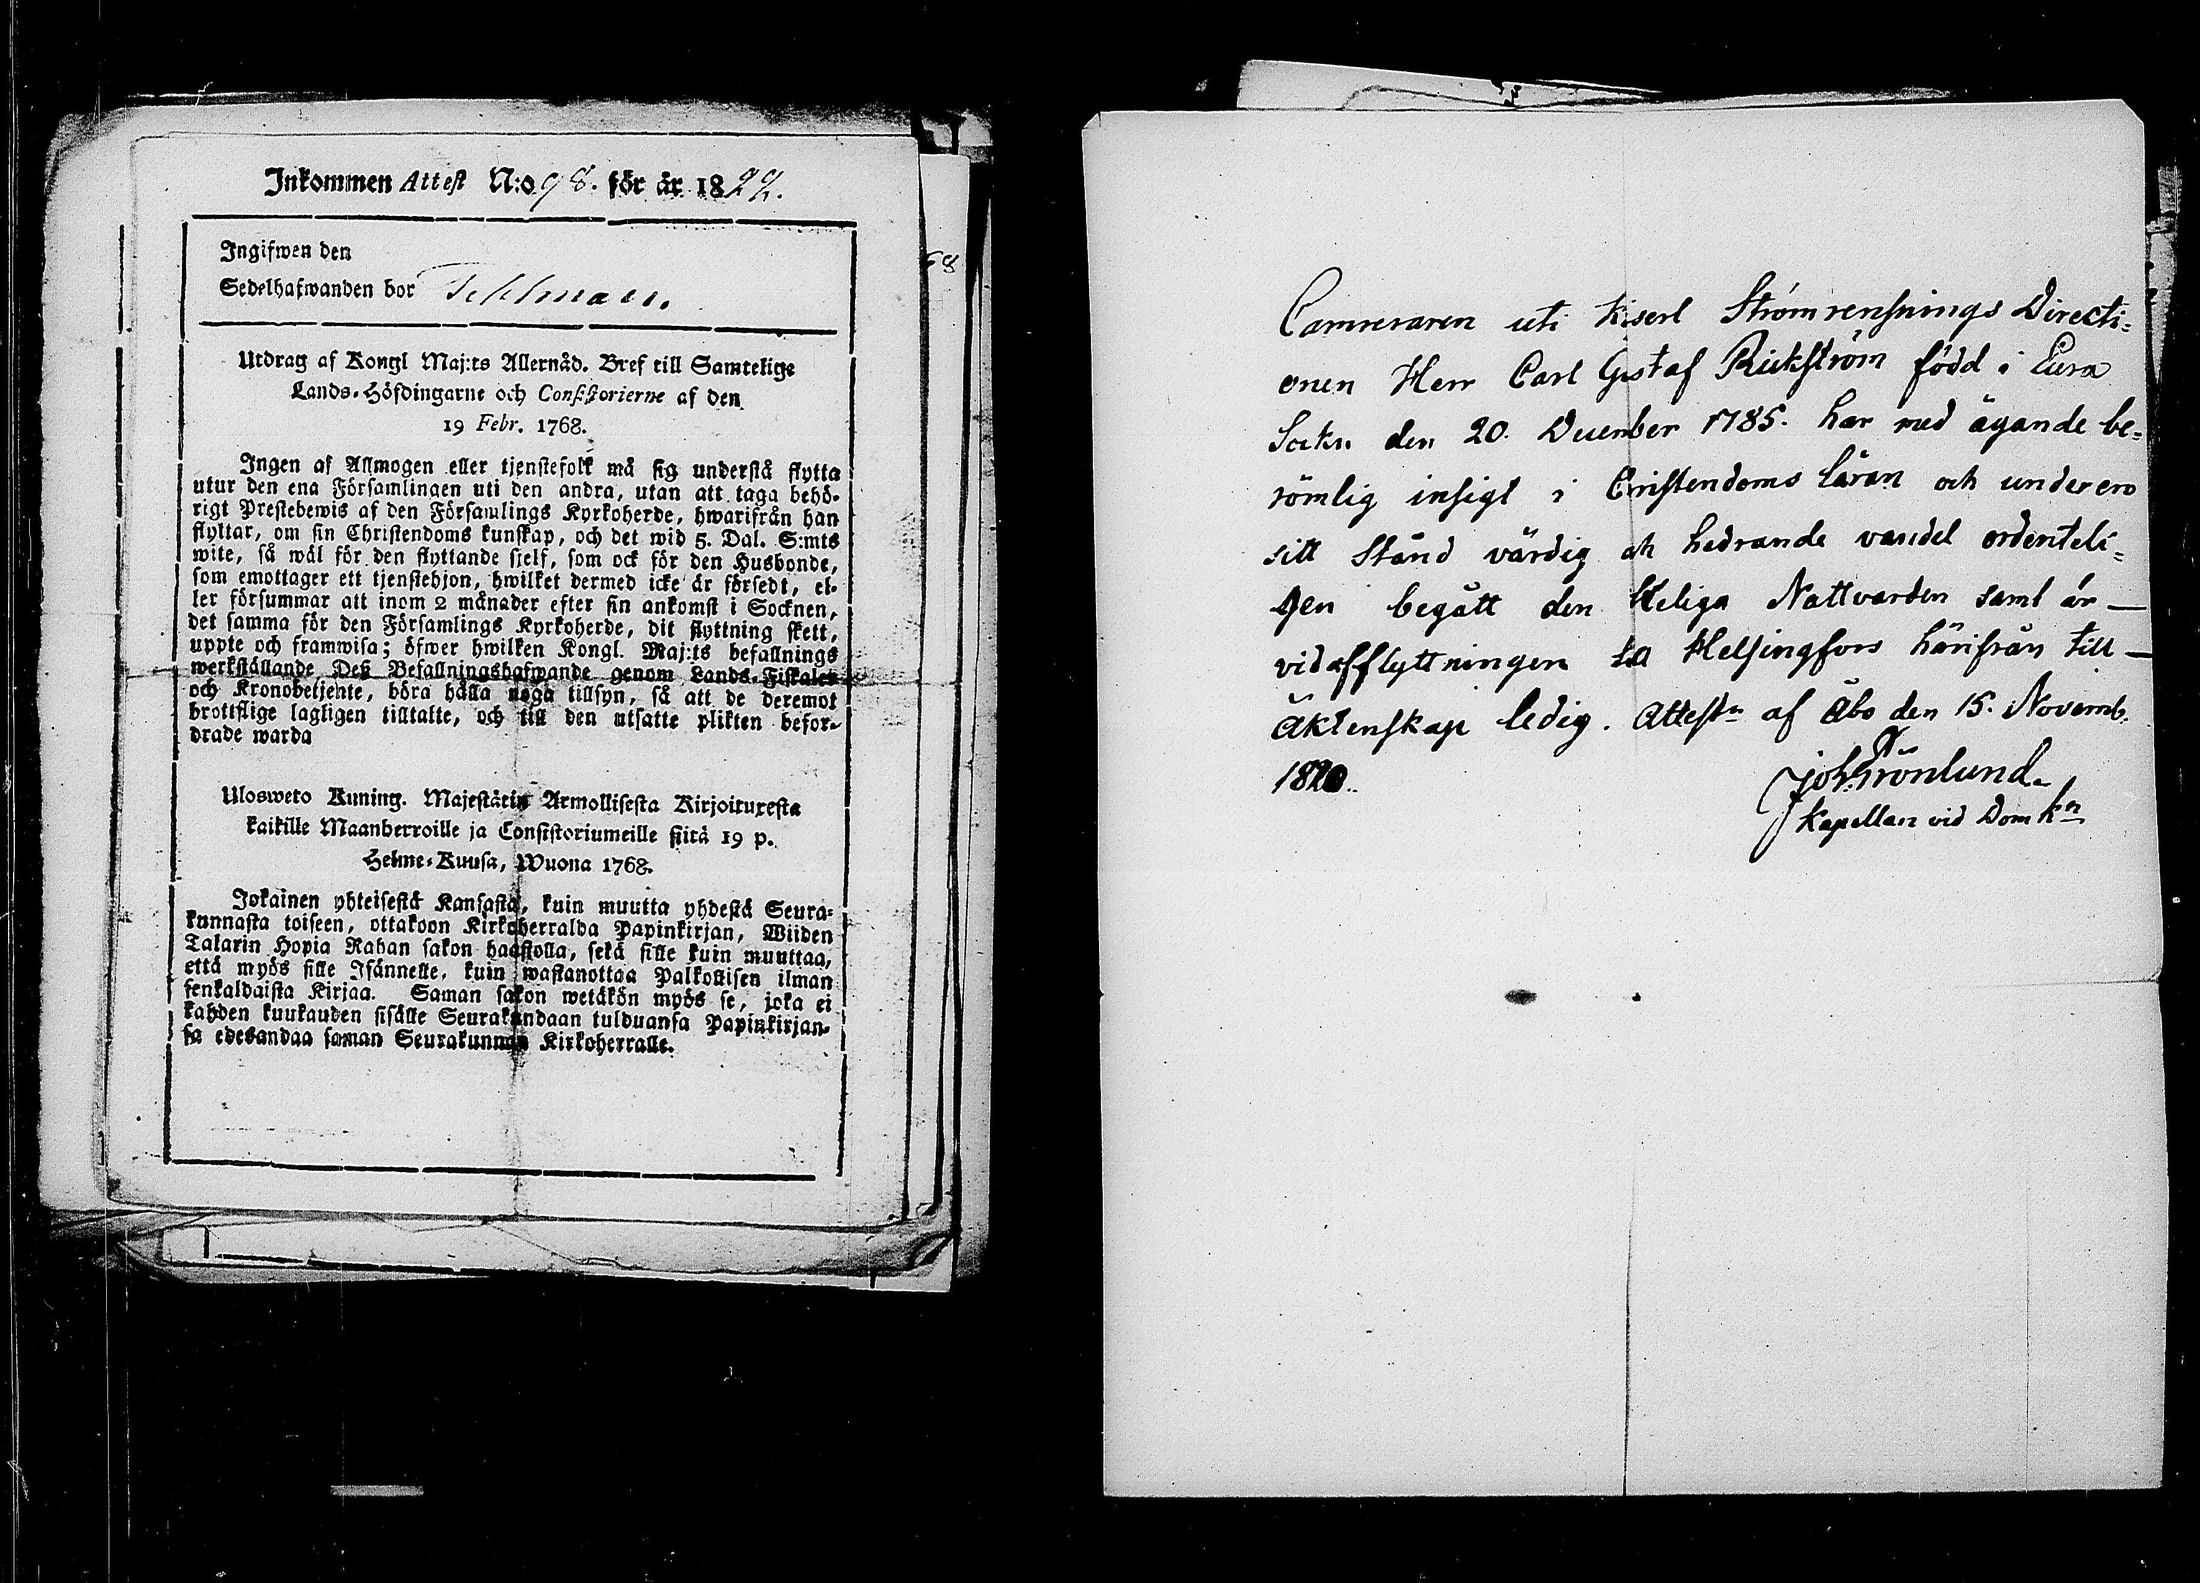 Inkommen Attest N:o 98. för år 1822.
Ingifwen den
Sedelhafwanden bor
Utdrag af Kongl Maj:ts Allernåd. Bref till Samtelige
Lands-Höfdingarne och Consistorierne af den
19 Febr. 1768.
Ingen af Allmogen eller tjenstefolk må sig understå flytta
utur den ena Församlingen uti den andra, utan att taga behö-
rigt Prestebewis af den Församlings Kyrkoherde, hwarifrån han
flyttar, om sin Christendoms kunskap, och det wid 5. Dal. S:mts
wite, så wäl för den flyttande sjelf, som ock för den Husbonde,
som emottager ett tjenstehjon, hwilket dermed icke är försedt, el-
ler försummar att inom 2 månader efter sin ankomst i Socknen,
det samma för den Församlings Kyrkoherde, dit flyttning skett,
uppte och framwisa; öfwer hwilken Kongl. Maj:ts befallnings
werkställande Deß Befallningshafwande genom Lands-Fiskaler
och Kronobetjente, böra hålla noga tillsyn, så att de deremot
brottslige lagligen tilltalte, och till den utsatte plikten befor-
drade warda
Ulosweto Kuning. Majestätin Armollisesta Kirjoituxesta
kaikille Maanherroille ja Consistoriumeille siitä 19 p.
Helme-Kuusa, Wuona 1768.
Jokainen yhteisestä Kansasta, kuin muutta yhdestä Seura-
kunnasta toiseen, ottakoon Kirkoherralda Papinkirjan, Wiiden
Talarin Hopia Rahan sakon haastolla, sekä sille kuin muuttaa,
että myös sille Isännelle, kuin wastanottaa Palkollisen ilman
senkaldaista Kirjaa. Saman sakon wetäkön myös se, joka ei
kahden kuukauden sisälle Seurakundaan tulduansa Papinkirjan-
sa edesandaa saman Seurakunnan Kirkoherralle.
68
Camreraren uti Kiserl Strömrensnings Directi=
onen Herr Carl Gustaf Rickström född i Eura
Sockn den 20. December 1785. har med ägande be=
römlig insigt i Cristendoms läran och under en
sitt Stånd värdig och hedrande vandel ordenteli=
gen begått den Heliga Nattvarden samt är —
vid afflyttningen till Helsingfors härifrån till —
Äktenskap ledig. Attestn af Åbo den 15. Novemb.
1820.
Joh: Grönlund.
Kapellan vid Dom kn